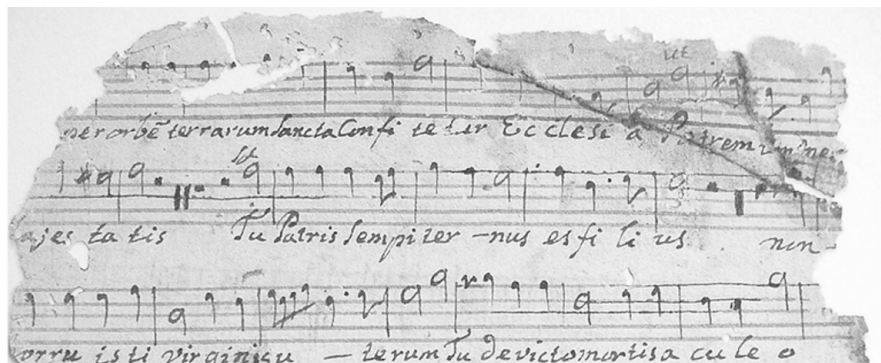 per orbē terrarum sancta Confi te tur Ec clesi a Patrem imme-
ajes ta tis Tu Patris sempi ter -nus es fi li us non-
orru is ti virginis u - terum Tu devicto mortis a cu le o